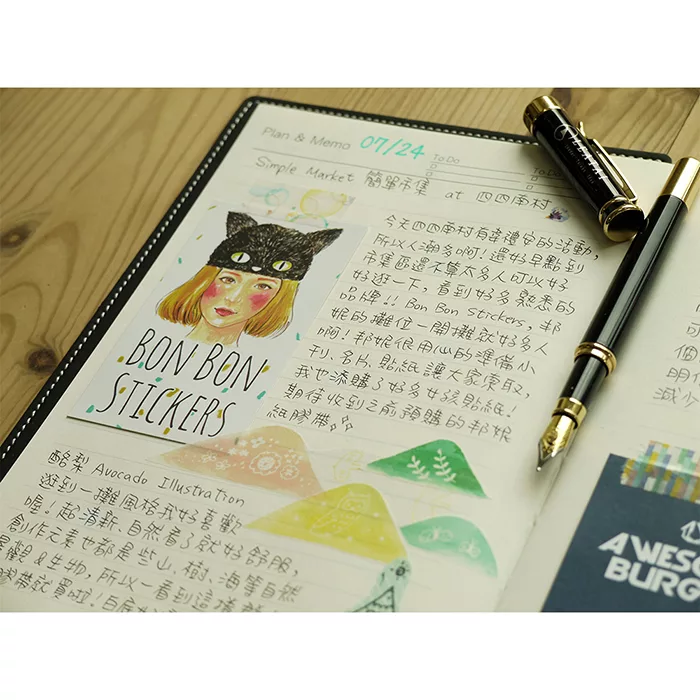 Plan & Memo 07/24
To Do
To Do
Simple Market 簡單市集 at 四四南村
今天四四南村有辜禮安的活動,
所以人潮多啊!還好早點到
市集區還不算太多人可以好
好逛一下,看到好多熟悉的
品牌!! Bon Bon Stickers, 邦
妮的攤位一開攤就好多人
啊!邦妮很用心的準備小
刊、名片、貼紙讓大家索取,
我也添購了好多女孩貼紙!
期待收到之前預購的邦妮
紙膠帶
BON BON
STICKERS
酪梨 Avocado Illustration
逛到一攤風格我好喜歡
喔!超清新、自然看了就好舒服,
創作元素也都是些山、樹、海等自然
觀&生物, 所以一看到這樣
膠帶就買啦!
個
明
減少
AWESO
BURG